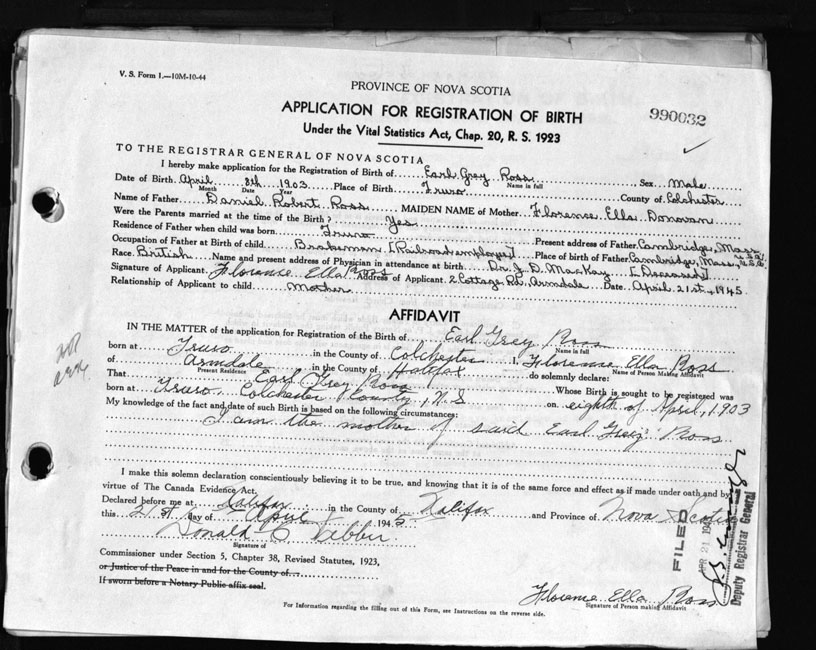 V. S. Form 1.—10M-10-44
PROVINCE OF NOVA SCOTIA
APPLICATION FOR REGISTRATION OF BIRTH
990032
Under the Vital Statistics Act, Chap. 20, R. S. 1923
TO THE REGISTRAR GENERAL OF NOVA SCOTIA
I hereby make application for the Registration of Birth of Earl Grey Ross Sex Male
Name in full
Date of Birth April 8th 1903 Place of Birth Truro County of Colchester
Month Date Year
Name of Father Daniel Robert Ross MAIDEN NAME of Mother Florence Ella Donovan
Were the Parents married at the time of the Birth? Yes
Residence of Father when child was born Truro Present address of Father Cambridge, Mass. U.S.A.
Occupation of Father at Birth of child Brakeman [Railroad employee] Place of birth of Father Cambridge, Mass., U.S.A.
Race British Name and present address of Physician in attendance at birth Dr. J. D. MacKay [Deceased]
Signature of Applicant Florence Ella Ross Address of Applicant 2 Cottage Rd., Armdale Date April 21st, 1945
Relationship of Applicant to child Mother
AFFIDAVIT
IN THE MATTER of the application for Registration of the Birth of Earl Grey Ross
Name in full
born at Truro in the County of Colchester I, Florence Ella Ross
Name of Person Making Affidavit
of Armdale in the County of Halifax do solemnly declare:
Present Residence
That Earl Grey Ross Whose Birth is sought to be registered was
born at Truro, Colchester County, N.S on eighth of April, 1903
My knowledge of the fact and date of such Birth is based on the following circumstances:
I am the mother of said Earl Grey Ross
I make this solemn declaration conscientiously believing it to be true, and knowing that it is of the same force and effect as if made under oath and by
virtue of The Canada Evidence Act.
Declared before me at Halifax in the County of Halifax and Province of Nova Scotia
this 21st day of April 1945
Donald C
Signature of
Commissioner under Section 5, Chapter 38, Revised Statutes, 1923,
or Justice of the Peace in and for the County of
If sworn before a Notary Public affix seal.
Florence Ella Ross
Signature of Person making Affidavit
For Information regarding the filling out of this Form, see Instructions on the reverse side.
FILED
APR 21 194
Deputy Registrar General